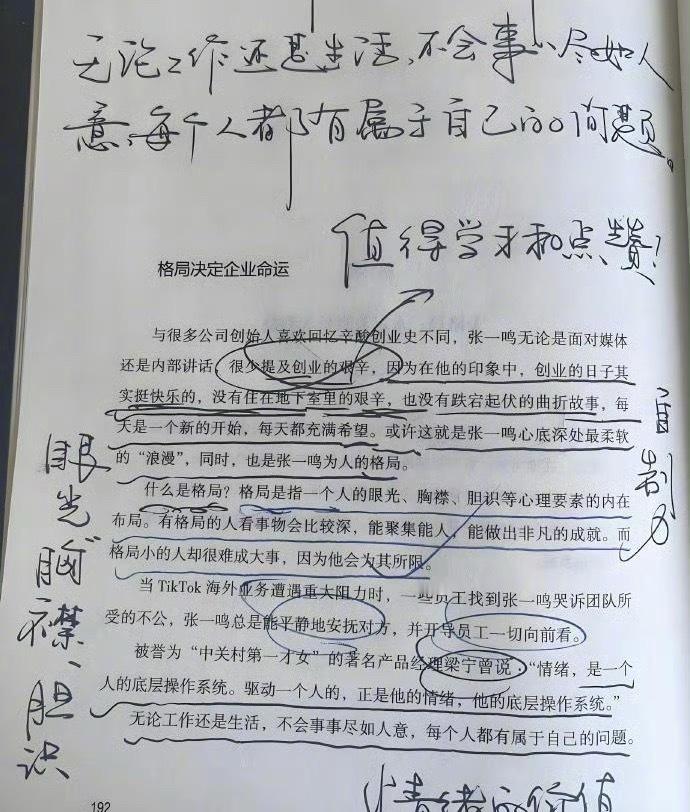 无论工作还是生活,不会事事尽如人
意,每个人都有属于自己的问题。
值得学习和点赞!
格局决定企业命运
与很多公司创始人喜欢回忆辛酸创业史不同,张一鸣无论是面对媒体
还是内部讲话,很少提及创业的艰辛,因为在他的印象中,创业的日子其
实挺快乐的,没有住在地下室里的艰辛,也没有跌宕起伏的曲折故事,每
天是一个新的开始,每天都充满希望。或许这就是张一鸣心底深处最柔软
的“浪漫”,同时,也是张一鸣为人的格局。
什么是格局?格局是指一个人的眼光、胸襟、胆识等心理要素的内在
布局。有格局的人看事物会比较深,能聚集能人,能做出非凡的成就。而
格局小的人却很难成大事,因为他会为其所限。
当 TikTok 海外业务遭遇重大阻力时,一些员工找到张一鸣哭诉团队所
受的不公,张一鸣总是能平静地安抚对方,并开导员工一切向前看。
被誉为“中关村第一才女”的著名产品经理梁宁曾说:“情绪,是一个
人的底层操作系统。驱动一个人的,正是他的情绪,他的底层操作系统。”
无论工作还是生活,不会事事尽如人意,每个人都有属于自己的问题。
眼光、胸襟、胆识
自制力
192
情绪的价值